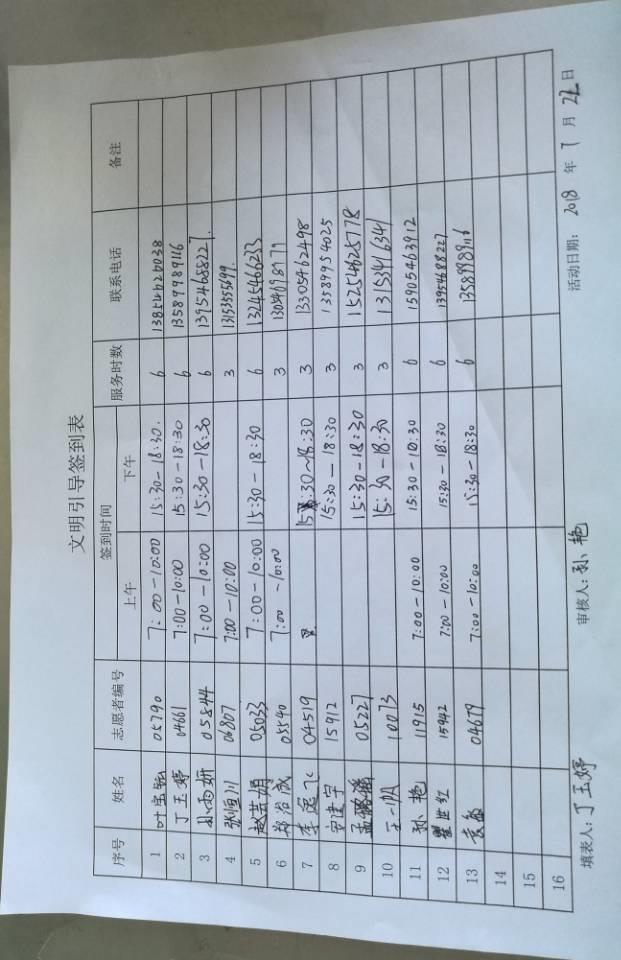 文明引导签到表
序号 姓名 志愿者编号 签到时间 服务时数 联系电话 备注
上午 下午
1 05790 7:00-10:00 15:30-18:30. 6 13854626038
2 丁玉婷 04661 7:00-10:00 15:30-18:30 6 13589989116
3 05844 7:00-10:00 15:30-18:30 6 13954688227.
4 张恒川 06807 7:00-10:00 3 13153555699.
5 赵芸娟 05033 7:00-10:00 15:30-18:30 6 13245466233
6 郑治成 05540 7:00-10:00 3
7 李逸飞 04519 15:30-18:30 3 13305462498
8 15912 15:30-18:30 3 13589954025
9 05227 15:30-18:30 3 15254625778
10 王一帆 10073 15:30-18:30 3 13153416341
11 孙艳 11915 7:00-10:00 15:30-18:30 6 15905463912
12 15942 7:00-10:00 15:30-18:30 6 13954688227
13 04679 7:00-10:00 15:30-18:30 6 13589989116
14
15
16
填表人：丁玉婷 审核人：孙艳 活动日期： 2018 年 7 月 22 日